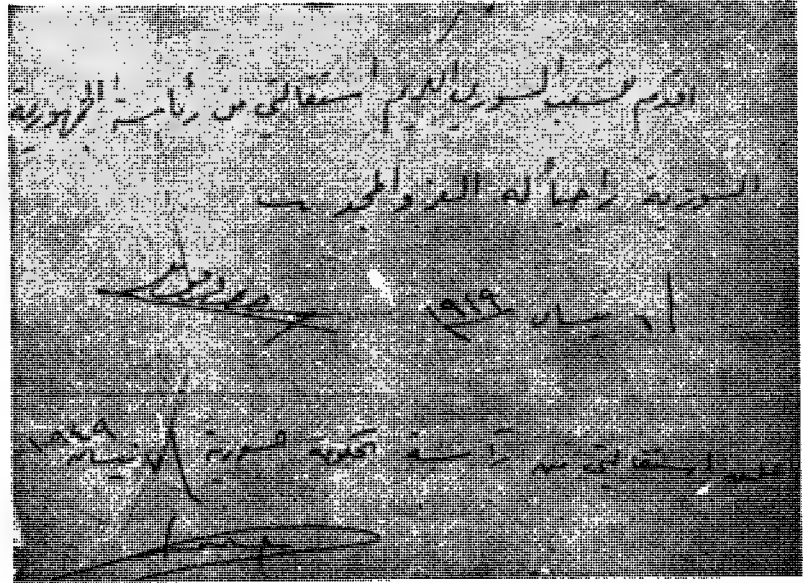 اقدم للشعب السوري الكريم استقالتي من رئاسة الجمهورية
السورية راجياً له العز والمجد
نيسان ١٩٤٩
استقالتي من رئاسة الحكومة السورية ٧ نيسان ١٩٤٩